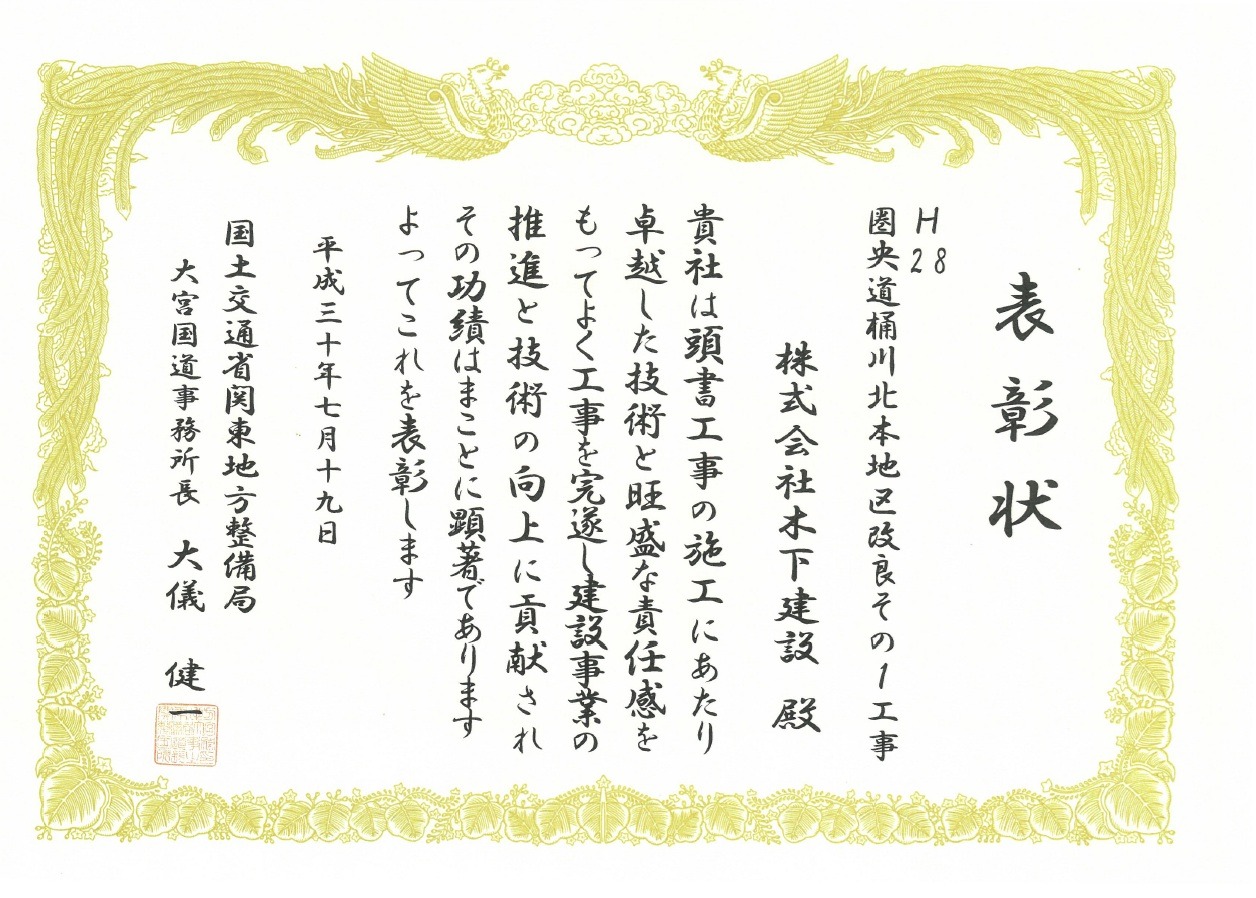 表彰状
H28
圏央道桶川北本地区改良その1工事
株式会社木下建設 殿
貴社は頭書工事の施工にあたり
卓越した技術と旺盛な責任感を
もってよく工事を完遂し建設事業の
推進と技術の向上に貢献され
その功績はまことに顕著であります
よってこれを表彰します
平成三十年七月十九日
国土交通省関東地方整備局
大宮国道事務所長 大儀 健一